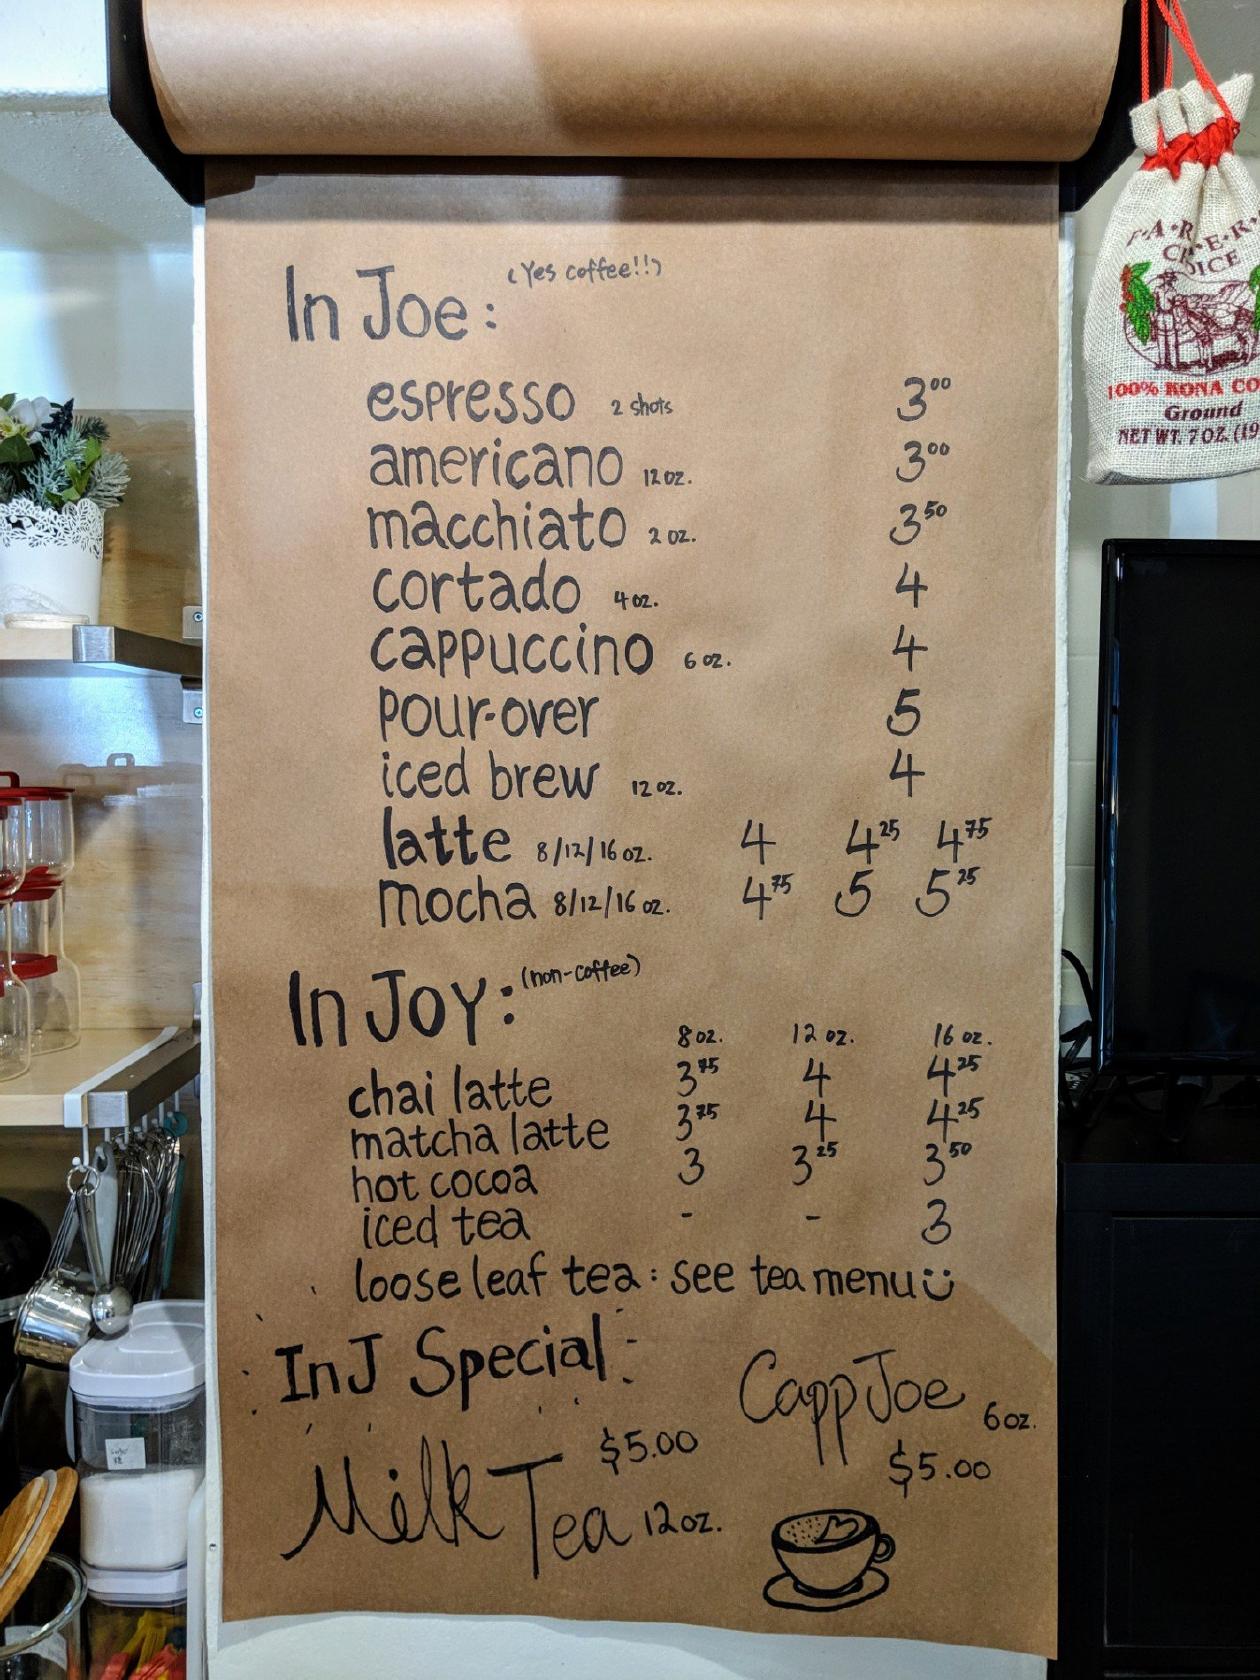 In Joe: (Yes coffee!!)
espresso 2 shots 3.00
americano 12 oz. 3.00
macchiato 2 oz. 3.50
cortado 4 oz. 4
cappuccino 6 oz. 4
pour-over 5
iced brew 12 oz. 4
latte 8/12/16 oz. 4 4.25 4.75
mocha 8/12/16 oz. 4.75 5 5.25
In Joy: (non-coffee)
8 oz. 12 oz. 16 oz.
chai latte 3.75 4 4.25
matcha latte 3.75 4 4.25
hot cocoa 3 3.25 3.50
iced tea - - 3
loose leaf tea: see tea menu ü
InJ Special:
CappJoe 6 oz.
$5.00
Milk Tea 12 oz.
$5.00
100% KONA CO
Ground
NET WT. 7 OZ. (19